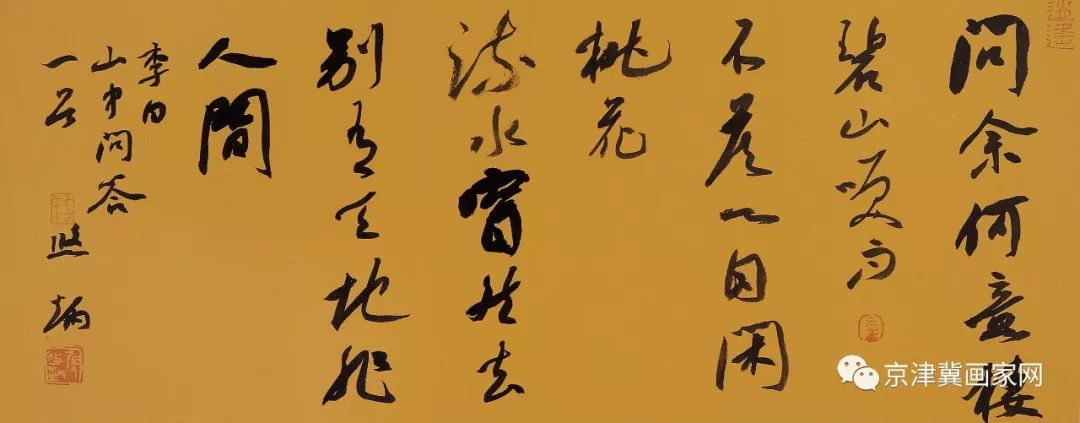 問余何意棲
碧山笑而
不答心自閑
桃花
流水窅然去
別有天地非
人間
李白
山中問答
一首
炳
京津冀画家网